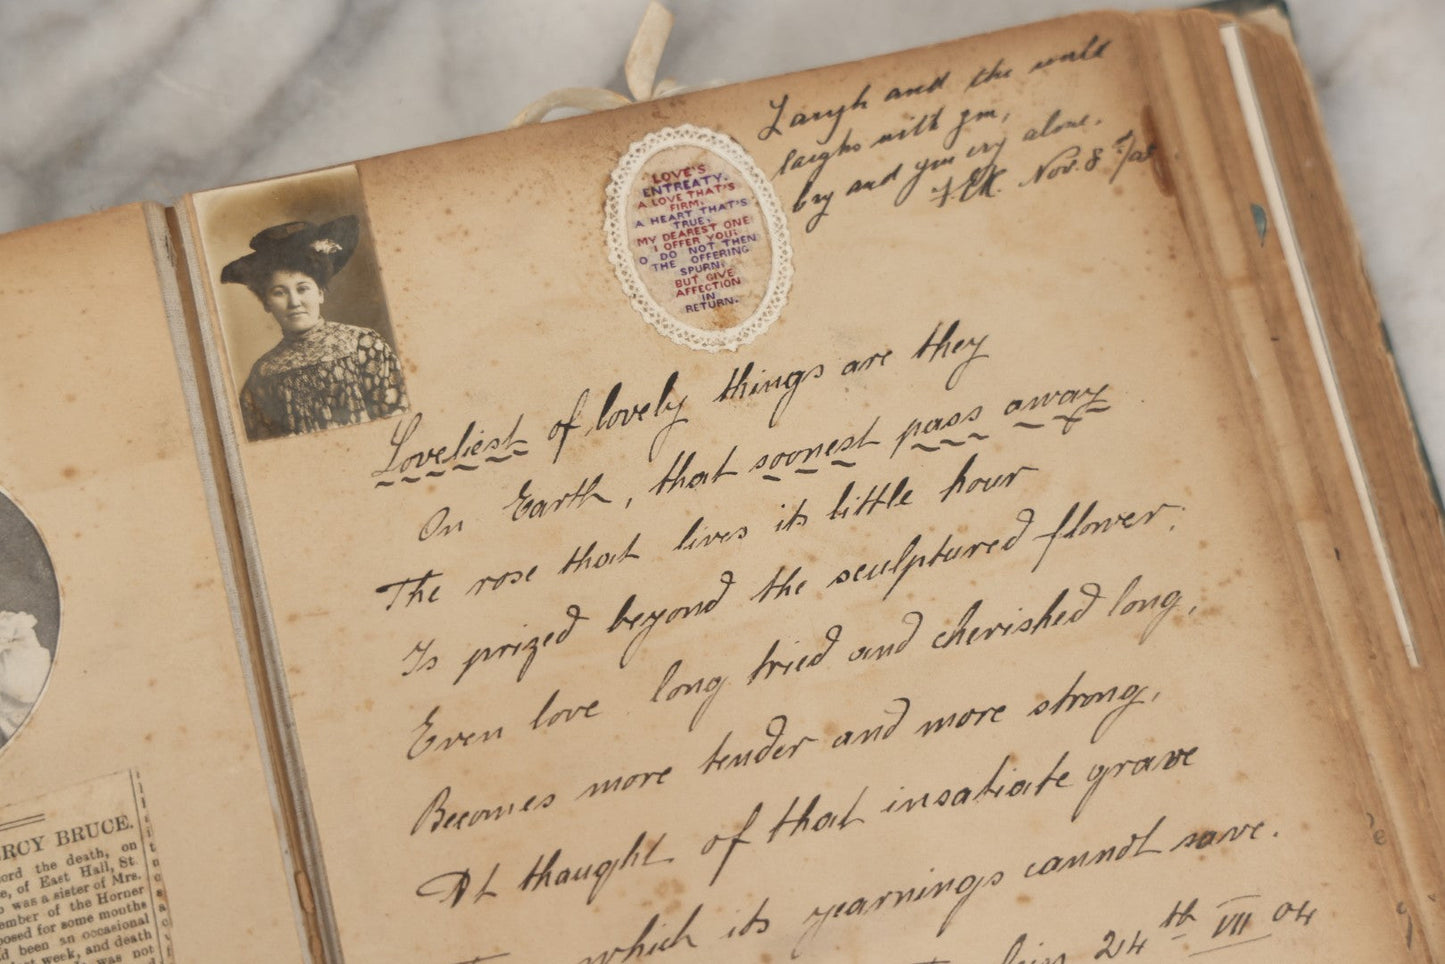 Laugh and the world
laughs with you,
Cry and you cry alone.
Nov. 8
LOVE'S
ENTREATY.
A LOVE THAT'S
FIRM,
A HEART THAT'S
TRUE,
MY DEAREST ONE
I OFFER YOU:
O DO NOT THEN
THE OFFERING
SPURN,
BUT GIVE
AFFECTION
IN
RETURN.
Loveliest of lovely things are they
On Earth, that soonest pass away
The rose that lives its little hour
Is prized beyond the sculptured flower;
Even love long tried and cherished long,
Becomes more tender and more strong,
At thought of that insatiate grave
which its yearnings cannot save.
24th VII 04
RCY BRUCE.
ord the death, on
e, of East Hall, St.
was a sister of Mrs.
ember of the Horner
posed for some months
d been an occasional
week, and death
was not